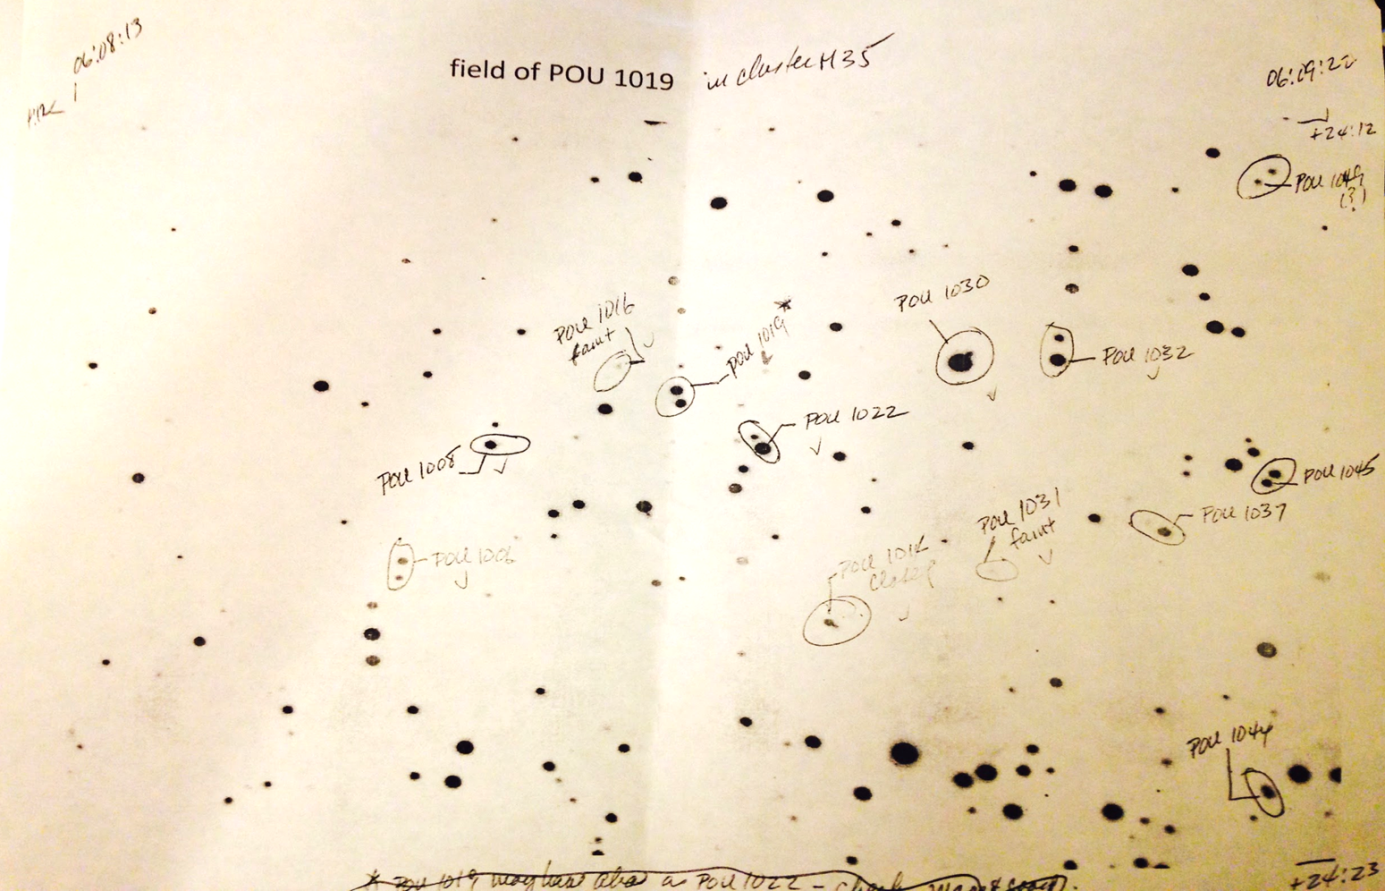 06:08:13
field of POU 1019 in cluster M35
06:09:22
+24:12
POU 1049
(?)
POU 1030
POU 1016
faint
POU 1019*
POU 1032
POU 1022
POU 1008
POU 1045
POU 1037
POU 1031
faint
POU 1006
POU
closer
POU 1044
* POU 1019 may have also a POU 1022 – check
+24:23